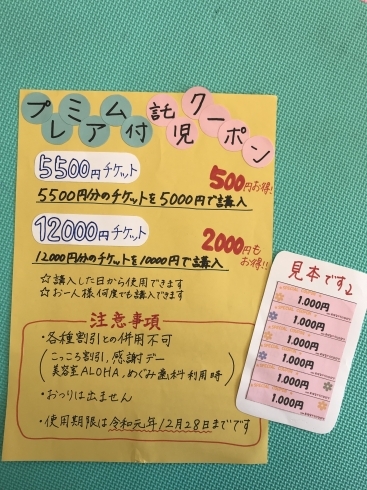 プレミアム付
託児クーポン
5500円チケット
500円お得!
5500円分のチケットを5000円で購入
12000円チケット
2000円もお得!!
12000円分のチケットを10000円で購入
☆購入した日から使用できます
☆お一人様何度でも購入できます
注意事項
・各種割引との併用不可
(こっころ割引、感謝デー
美容室ALOHA、めぐみ歯科利用時)
・おつりは出ません
・使用期限は令和元年12月28日までです
見本です♪
1.000円
1.000円
1.000円
1.000円
1.000円
1.000円